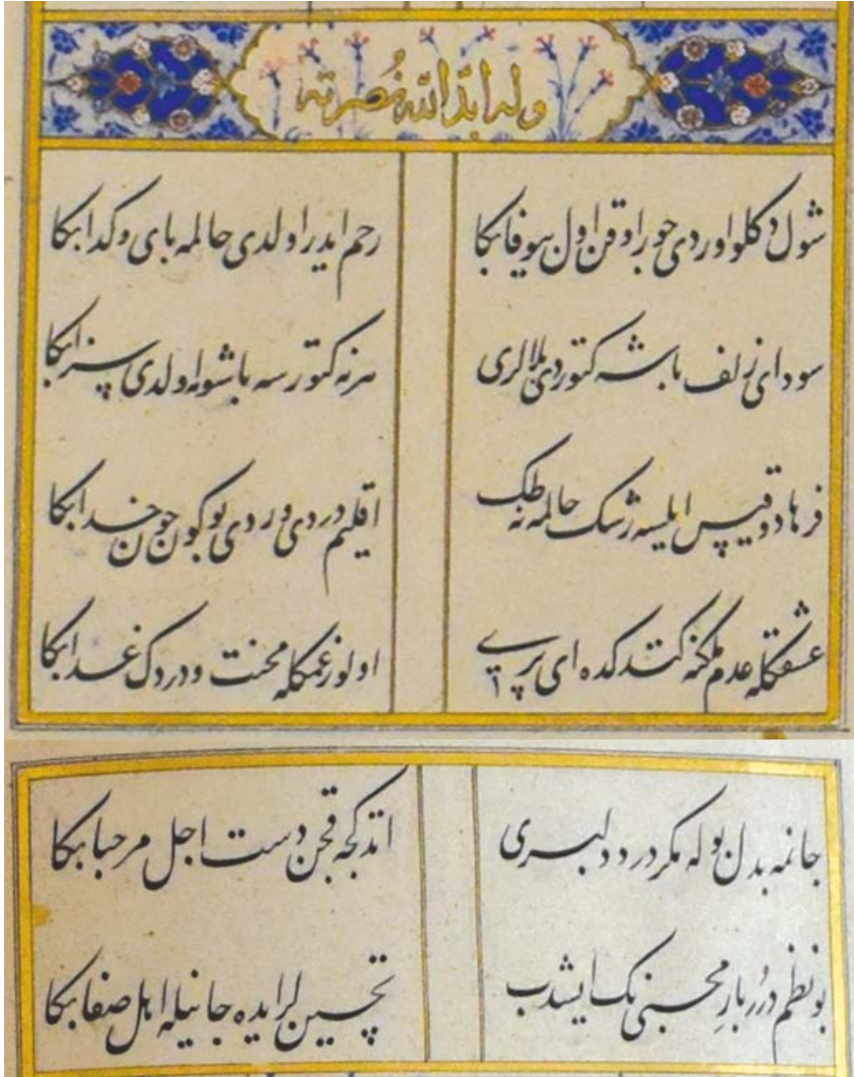 وله ايد الله نُصرته
شول دكلو اوردى جور اوقن اول بيوفا بكا
رحم ايدر اولدى حالمه باى و كدا بكا
سوداى زلف باشه كتوردى بلالرى
هر نه كتورسه باشومه اولدى سزا بكا
فرهاد و قيس ايليسه رشك حالمه نه طك
اقليم دردى وردى بوكون چون خدا بكا
عشقكله عدم ملكنه كتدكده اى پرى
اولور غمكله محنت و دردك غدا بكا
جانمه بدل بوله مكر درد دلبرى
اتدكجه قچن دست اجل مرحبا بكا
بو نظم دُرربارِ محبى نك ايشدب
تحسين لر ايده جانيله اهل صفا بكا